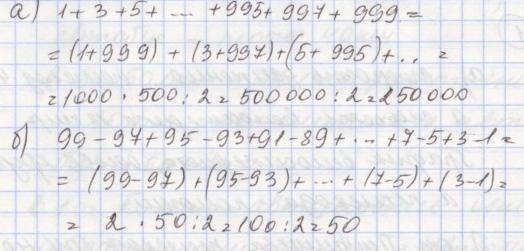 а) 1+3+5+ ... +995+997+999=
=(1+999)+(3+997)+(5+995)+..=
=1000·500:2=500000:2=250000
б) 99-97+95-93+91-89+...+7-5+3-1=
=(99-97)+(95-93)+...+(7-5)+(3-1)=
= 2·50:2=100:2=50